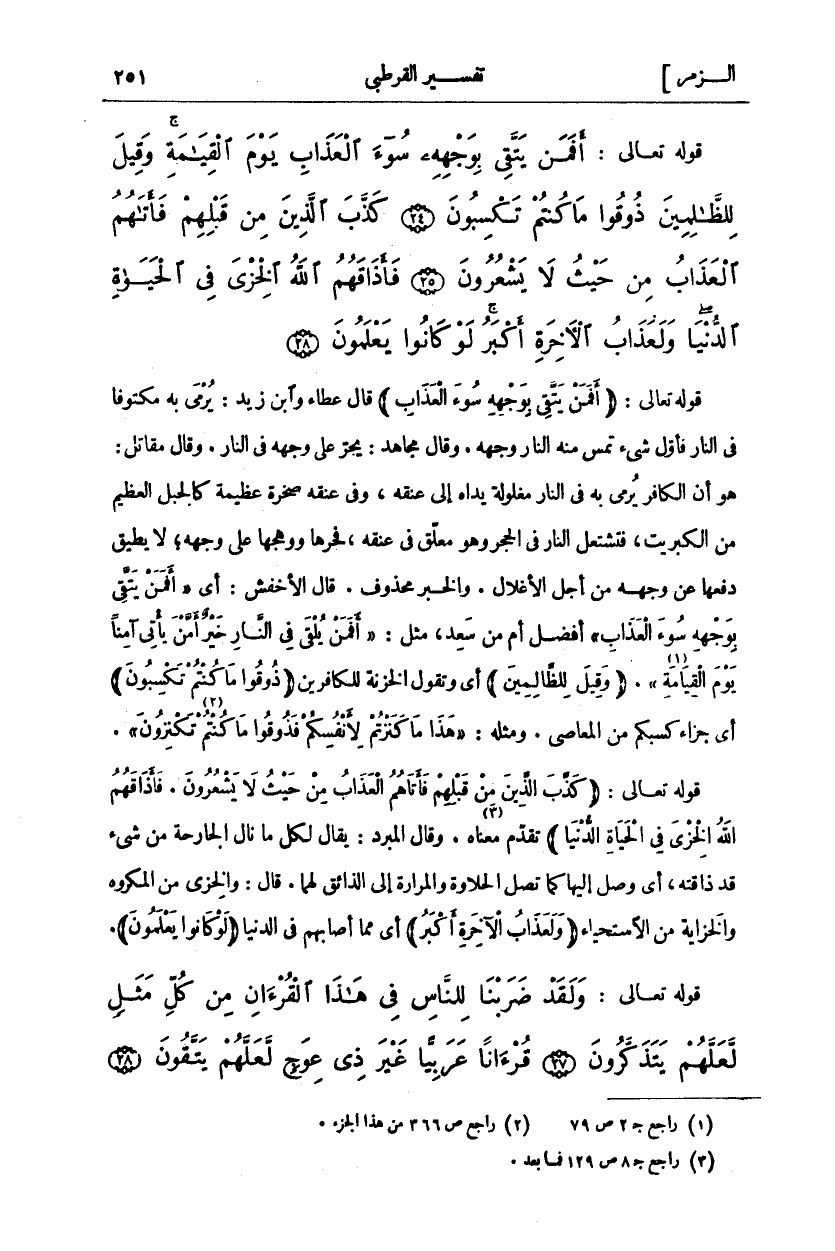 الـــزمر ] تفســـير القرطبي ٢٥١
قوله تعـالى : أَفَمَن يَتَّقِى بِوَجْهِهِۦ سُوٓءَ ٱلْعَذَابِ يَوْمَ ٱلْقِيَـٰمَةِ ۚ وَقِيلَ
لِلظَّـٰلِمِينَ ذُوقُوا مَا كُنتُمْ تَكْسِبُونَ ﴿٢٤﴾ كَذَّبَ ٱلَّذِينَ مِن قَبْلِهِمْ فَأَتَـٰهُمُ
ٱلْعَذَابُ مِن حَيْثُ لَا يَشْعُرُونَ ﴿٢٥﴾ فَأَذَاقَهُمُ ٱللَّهُ ٱلْخِزْىَ فِى ٱلْحَيَوٰةِ
ٱلدُّنْيَا ۖ وَلَعَذَابُ ٱلْآخِرَةِ أَكْبَرُ ۚ لَوْ كَانُوا يَعْلَمُونَ ﴿٢٨﴾
قوله تعالى : ﴿ أَفَمَنْ يَتَّقِى بِوَجْهِهِ سُوءَ الْعَذَابِ ﴾ قال عطاء وٱبن زيد : يُرْمَى به مكتوفا
فى النار فأوّل شىء تمس منه النار وجهه . وقال مجاهد : يجرّ على وجهه فى النار . وقال مقاتل :
هو أن الكافر يُرمى به فى النار مغلولة يداه إلى عنقه ، وفى عنقه صخرة عظيمة كالجبل العظيم
من الكبريت ، فتشتعل النار فى الحجر وهو معلّق فى عنقه ، فحرها ووهجها على وجهه ؛ لا يطيق
دفعها عن وجهـه من أجل الأغلال . والخـبر محذوف . قال الأخفش : أى « أَفَمَنْ يَتَّقِى
بِوَجْهِهِ سُوءَ الْعَذَابِ » أفضـل أم من سَعِد ، مثل : « أَفَمَنْ يُلْقَى فِى النَّارِ خَيْرٌ أَمَّنْ يَأْتِى آمِناً
يَوْمَ الْقِيَامَةِ (١) » . ﴿ وَقِيلَ لِلظَّالِمِينَ ﴾ أى وتقول الخزنة للكافرين ﴿ ذُوقُوا مَا كُنْتُمْ تَكْسِبُونَ ﴾
أى جزاء كسبكم من المعاصى . ومثله : « هَذَا مَا كَنَزْتُمْ لِأَنْفُسِكُمْ فَذُوقُوا مَا كُنْتُمْ تَكْنِزُونَ (٢) » .
قوله تعـالى : ﴿ كَذَّبَ الَّذِينَ مِنْ قَبْلِهِمْ فَأَتَاهُمُ الْعَذَابُ مِنْ حَيْثُ لَا يَشْعُرُونَ . فَأَذَاقَهُمُ
اللهُ الْخِزْىَ فِى الْحَيَاةِ الدُّنْيَا ﴾ تقدّم معناه (٣) . وقال المبرد : يقال لكل ما نال الجارحة من شىء
قد ذاقته ، أى وصل إليها كما تصل الحلاوة والمرارة إلى الذائق لهما . قال : والخزى من المكروه
والخزاية من الاستحياء ﴿ وَلَعَذَابُ الْآخِرَةِ أَكْبَرُ ﴾ أى مما أصابهم فى الدنيا ﴿ لَوْ كَانُوا يَعْلَمُونَ ﴾ .
قوله تعـالى : وَلَقَدْ ضَرَبْنَا لِلنَّاسِ فِى هَـٰذَا ٱلْقُرْءَانِ مِن كُلِّ مَثَـلٍ
لَّعَلَّهُمْ يَتَذَكَّرُونَ ﴿٢٧﴾ قُرْءَانًا عَرَبِيًّا غَيْرَ ذِى عِوَجٍ لَّعَلَّهُمْ يَتَّقُونَ ﴿٢٨﴾
(١) راجع جـ ٢ ص ٧٩ (٢) راجع ص ٣٦٦ من هذا الجزء .
(٣) راجع جـ ٨ ص ١٢٩ فما بعد .